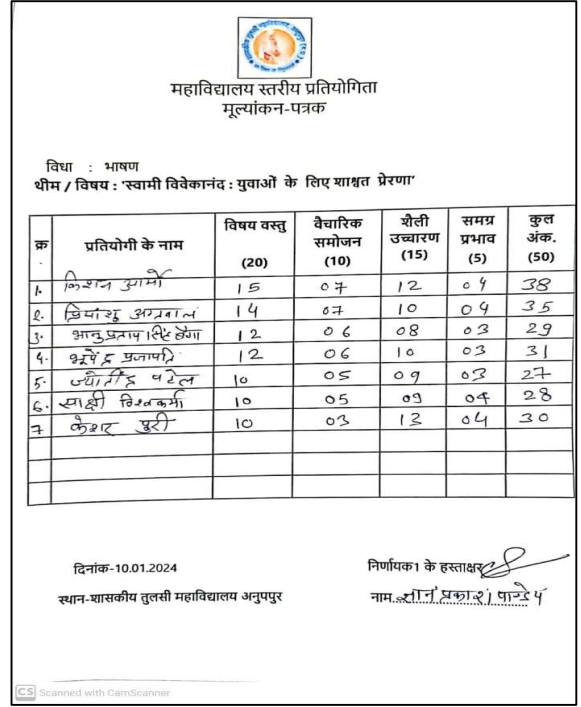 महाविद्यालय स्तरीय प्रतियोगिता
मूल्यांकन-पत्रक
विधा : भाषण
थीम / विषय : 'स्वामी विवेकानंद : युवाओं के लिए शाश्वत प्रेरणा'
क्र. प्रतियोगी के नाम विषय वस्तु (20) वैचारिक समोजन (10) शैली उच्चारण (15) समग्र प्रभाव (5) कुल अंक. (50)
1. किशन आर्मो 15 07 12 04 38
२. प्रियांशु अग्रवाल 14 07 10 04 35
3. भानु प्रताप सिंह बैगा 12 06 08 03 29
4. भूपेंद्र प्रजापति 12 06 10 03 31
5. ज्योतींद्र पटेल 10 05 09 03 27
6. साक्षी विश्वकर्मा 10 05 09 04 28
7 केशर पुरी 10 03 13 04 30
दिनांक-10.01.2024
निर्णायक1 के हस्ताक्षर
स्थान-शासकीय तुलसी महाविद्यालय अनुपपुर
नाम. ज्ञान प्रकाश पाण्डेय
CS Scanned with CamScanner